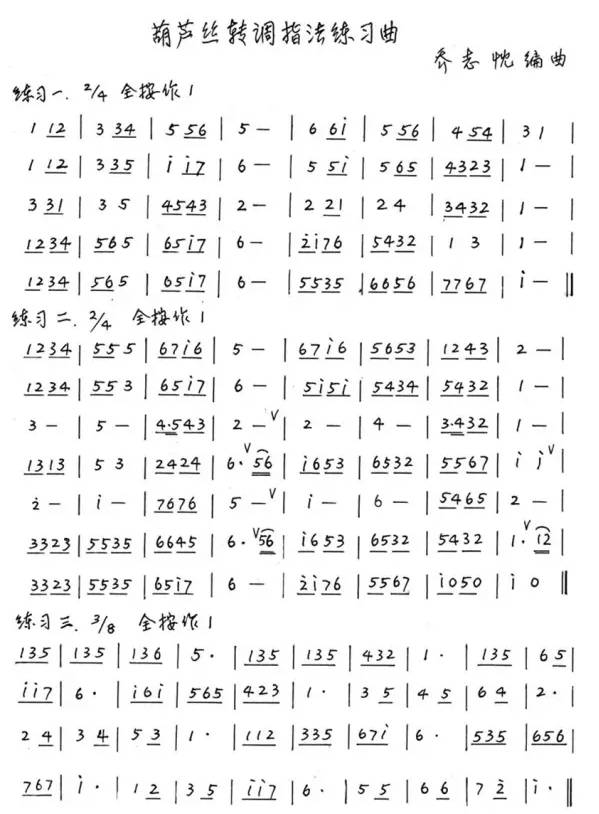 葫芦丝转调指法练习曲
乔志忱编曲
练习一. 2/4 全按作1
1 12 | 3 34 | 5 56 | 5 — | 6 6i | 5 56 | 4 54 | 3 1 |
1 12 | 3 35 | i i7 | 6 — | 5 5i | 5 65 | 4323 | 1 — |
3 31 | 3 5 | 4543 | 2 — | 2 21 | 2 4 | 3432 | 1 — |
1234 | 56 5 | 65i7 | 6 — | 2̇i76 | 5432 | 1 3 | 1 — |
1234 | 56 5 | 65i7 | 6 — | 5535 | 6656 | 7767 | i — ‖
练习二. 2/4 全按作1
1234 | 55 5 | 67i6 | 5 — | 67i6 | 5653 | 1243 | 2 — |
1234 | 55 3 | 65i7 | 6 — | 5i5i | 5434 | 5432 | 1 — |
3 — | 5 — | 4·543 | 2 — V | 2 — | 4 — | 3·432 | 1 — |
1313 | 5 3 | 2424 | 6· V 56 | i653 | 6532 | 5567 | i i V |
2̇ — | i — | 7676 | 5 — V | i — | 6 — | 5465 | 2 — |
3323 | 5535 | 6645 | 6· V 56 | i653 | 6532 | 5432 | 1· V 12 |
3323 | 5535 | 65i7 | 6 — | 2̇i76 | 5567 | i050 | i 0 ‖
练习三. 3/8 全按作1
135 | 135 | 136 | 5· | 135 | 135 | 432 | 1· | 135 | 6 5 |
ii7 | 6· | i6i | 565 | 423 | 1· | 3 5 | 4 5 | 6 4 | 2· |
2 4 | 3 4 | 5 3 | 1· | 112 | 335 | 67i | 6· | 535 | 656 |
767 | i· | 1 2 | 3 5 | ii7 | 6· | 5 5 | 6 6 | 7 2̇ | i· ‖